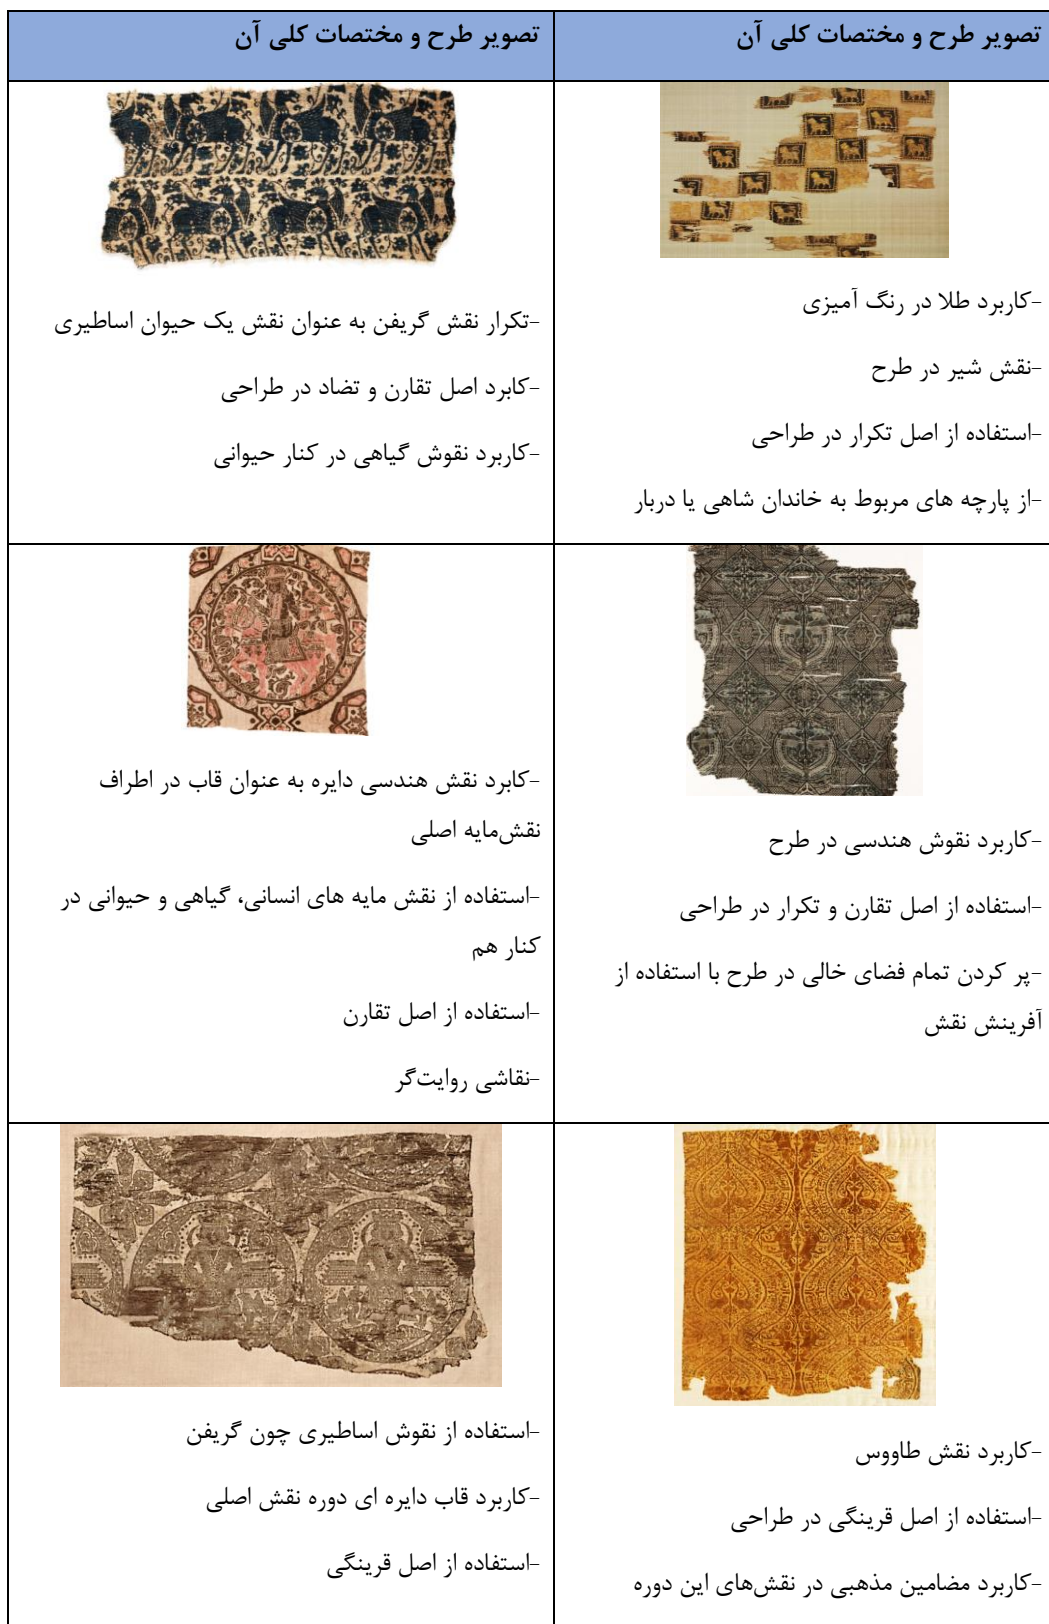 تصویر طرح و مختصات کلی آن
تصویر طرح و مختصات کلی آن
-کاربرد طلا در رنگ آمیزی
-نقش شیر در طرح
-استفاده از اصل تکرار در طراحی
-از پارچه های مربوط به خاندان شاهی یا دربار
-تکرار نقش گریفن به عنوان نقش یک حیوان اساطیری
-کابرد اصل تقارن و تضاد در طراحی
-کاربرد نقوش گیاهی در کنار حیوانی
-کاربرد نقوش هندسی در طرح
-استفاده از اصل تقارن و تکرار در طراحی
-پر کردن تمام فضای خالی در طرح با استفاده از
آفرینش نقش
-کابرد نقش هندسی دایره به عنوان قاب در اطراف
نقش‌مایه اصلی
-استفاده از نقش مایه های انسانی، گیاهی و حیوانی در
کنار هم
-استفاده از اصل تقارن
-نقاشی روایت‌گر
-کاربرد نقش طاووس
-استفاده از اصل قرینگی در طراحی
-کاربرد مضامین مذهبی در نقش‌های این دوره
-استفاده از نقوش اساطیری چون گریفن
-کاربرد قاب دایره ای دوره نقش اصلی
-استفاده از اصل قرینگی